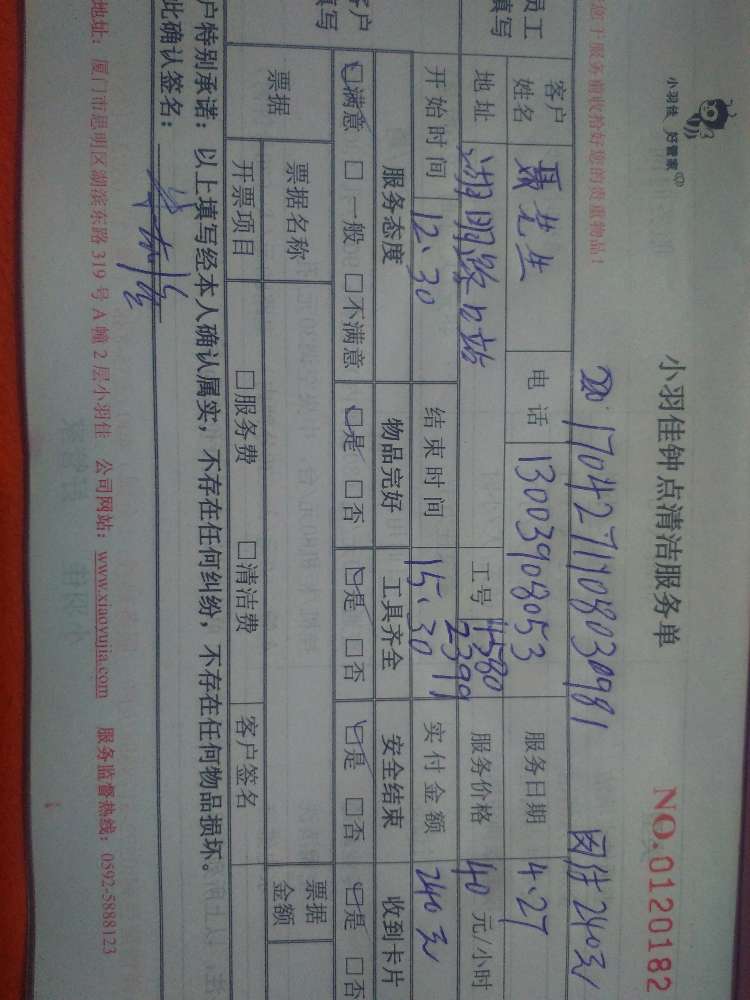 小羽佳 好管家
小羽佳钟点清洁服务单
NO.0120182
您于服务前收拾好您的贵重物品!
1704271108030981
240元
员工
填写
客户
姓名
电话 13003908053 服务日期 4.27
地址 湖明路 工号 4580
2399 服务价格 40 元/小时
开始时间 12.30 结束时间 15.30 实付金额 240元
客户
填写
服务态度 物品完好 工具齐全 安全结束 收到卡片
☑满意 □一般 □不满意 ☑是 □否 ☑是 □否 ☑是 □否 ☑是 □否
票据 票据名称 票据
金额
开票项目 □服务费 □清洁费 客户签名
户特别承诺：以上填写经本人确认属实，不存在任何纠纷，不存在任何物品损坏。
此确认签名：
地址：厦门市思明区湖滨东路 319 号 A 幢 2 层小羽佳 公司网站：www.xiaoyujia.com 服务监督热线：0592-5888123